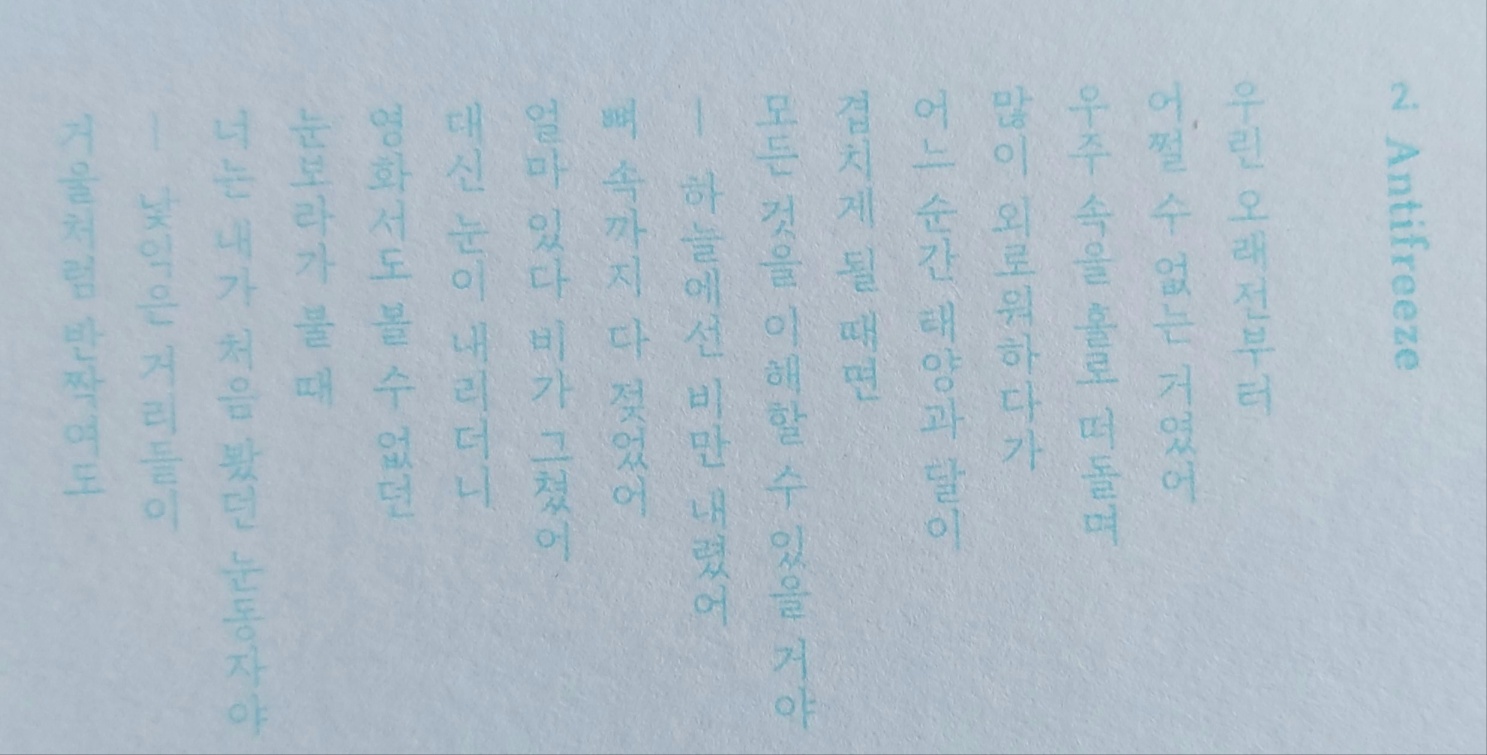 2. Antifreeze
우린 오래전부터
어쩔 수 없는 거였어
우주 속을 홀로 떠돌며
많이 외로워하다가
어느 순간 태양과 달이
겹치게 될 때면
모든 것을 이해할 수 있을 거야
— 하늘에선 비만 내렸어
뼈 속까지 다 젖었어
얼마 있다 비가 그쳤어
대신 눈이 내리더니
영화서도 볼 수 없던
눈보라가 불 때
너는 내가 처음 봤던 눈동자야
— 낯익은 거리들이
거울처럼 반짝여도